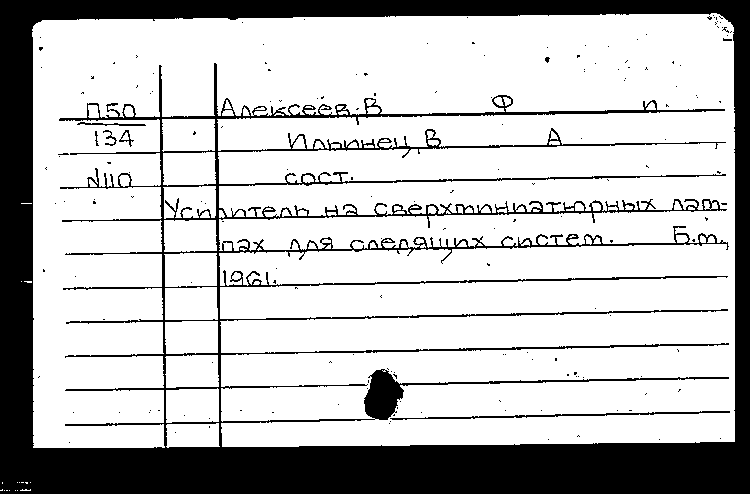 П50 Алексеев, В Ф п.
134 Ильинец, В А
№110 сост.
Усилитель на сверхминиатюрных лам-
пах для следящих систем. Б.м.,
1961.